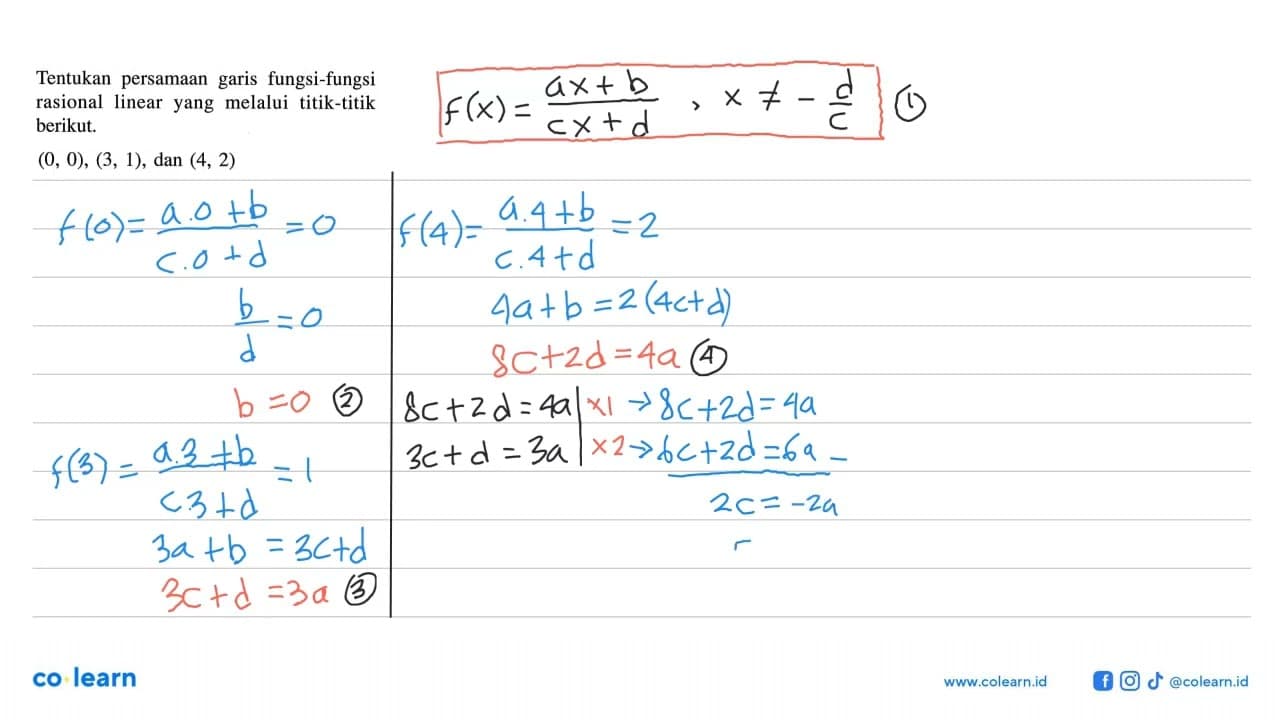 Tentukan persamaan garis fungsi-fungsi
rasional linear yang melalui titik-titik
berikut.
(0, 0), (3, 1), dan (4, 2)
f(x) = (ax + b)/(cx + d) , x ≠ - d/c ①
f(0) = (a.0 + b)/(c.0 + d) = 0
b/d = 0
b = 0 ②
f(3) = (a.3 + b)/(c3 + d) = 1
3a + b = 3c + d
3c + d = 3a ③
f(4) = (a.4 + b)/(c.4 + d) = 2
4a + b = 2(4c + d)
8c + 2d = 4a ④
8c + 2d = 4a | ×1 → 8c + 2d = 4a
3c + d = 3a | ×2 → 6c + 2d = 6a -
2c = -2a
co learn
www.colearn.id
@colearn.id